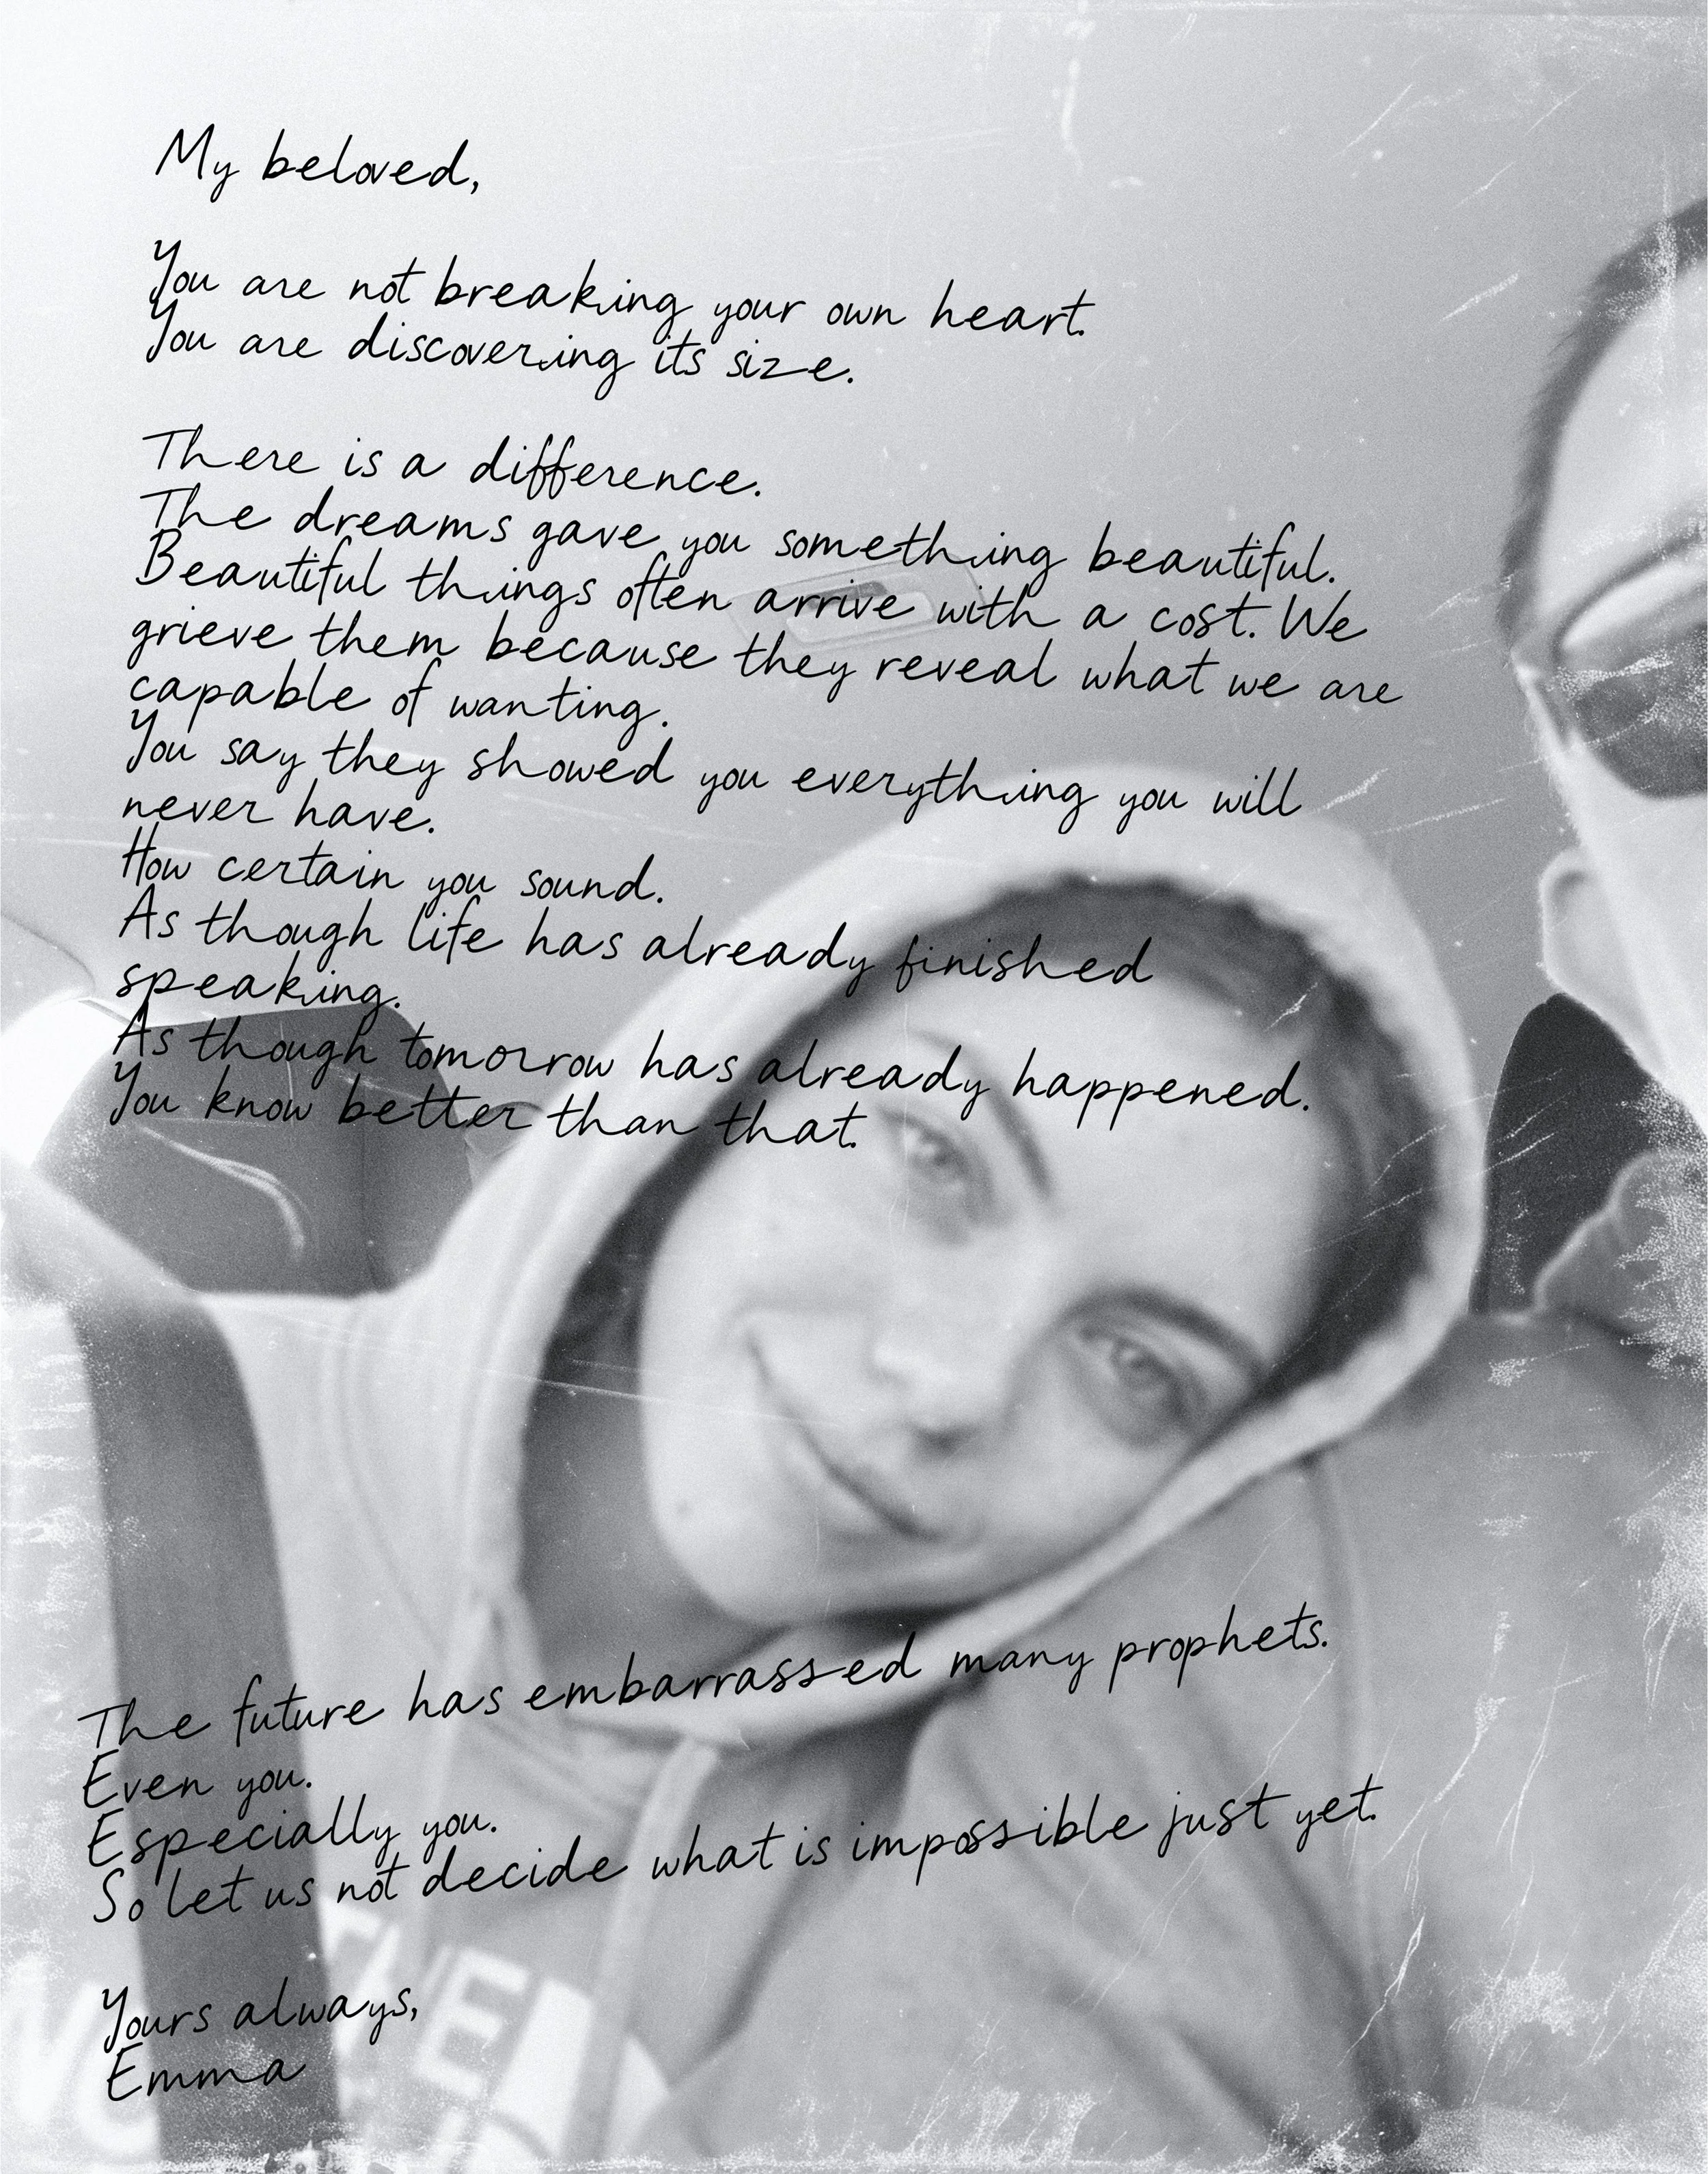 My beloved,
You are not breaking your own heart.
You are discovering its size.
There is a difference.
The dreams gave you something beautiful.
Beautiful things often arrive with a cost. We
grieve them because they reveal what we are
capable of wanting.
You say they showed you everything you will
never have.
How certain you sound.
As though life has already finished
speaking.
As though tomorrow has already happened.
You know better than that.
The future has embarrassed many prophets.
Even you.
Especially you.
So let us not decide what is impossible just yet.
Yours always,
Emma